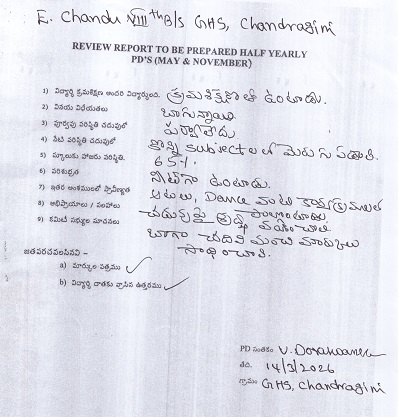 E. Chandu VIII th B/s GHS, Chandragiri
REVIEW REPORT TO BE PREPARED HALF YEARLY
PD'S (MAY & NOVEMBER)
1) విద్యార్థి క్రమశిక్షణ అందరి విద్యార్థులది. క్రమశిక్షణతో ఉంటాడు.
2) వినయ విధేయతలు బాగున్నాయి
3) పూర్వపు పరిస్థితి చదువులో పర్వాలేదు
4) నేటి పరిస్థితి చదువులో కొన్ని subject లలో మెరుగు పడాలి.
5) స్కూలుకు హాజరు పరిస్థితి. 65%.
6) పరిశుభ్రత నీట్‌గా ఉంటాడు.
7) ఇతర అంశములలో ప్రావీణ్యత ఆటలు, Dance వంటి కార్యక్రమాలలో పాల్గొంటాడు.
8) అభిప్రాయాలు / సలహాలు చదువుపై శ్రద్ధ వహించాలి
9) కమిటీ సభ్యుల సూచనలు బాగా చదివి మంచి మార్కులు
సాధించాలి.
జతపరచవలసినవి -
a) మార్కుల పత్రము ✓
b) విద్యార్థి దాతకు వ్రాసిన ఉత్తరము ✓
PD సంతకం V.
తేది. 14/3/2026
గ్రామం GHS, Chandragiri